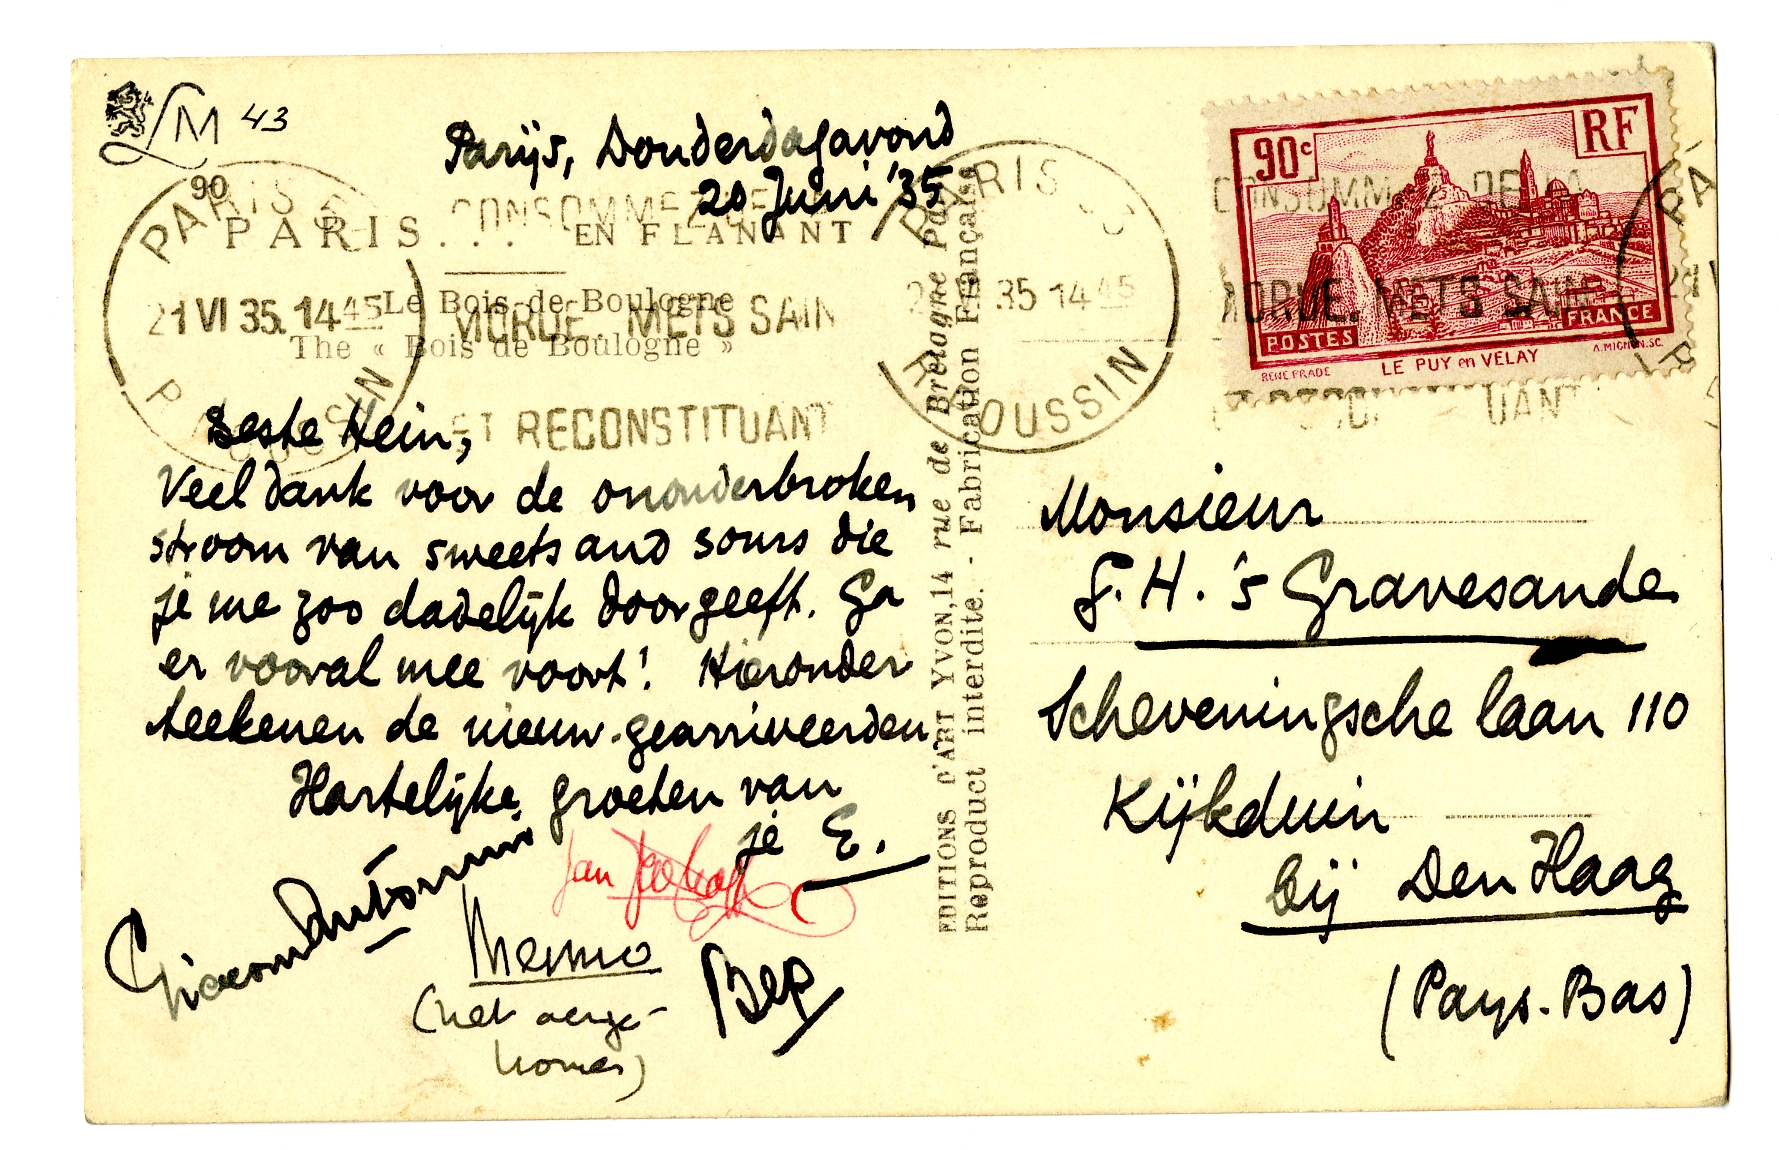 LM 43
Parijs, Donderdagavond
20 Juni '35
90
PARIS... EN FLANANT
Le Bois de Boulogne
The « Bois de Boulogne »
PARIS
21 VI 35. 14 45
CONSOMMEZ DE
MORUE. METS SAIN
ET RECONSTITUANT
PARIS
35 14 45
R. POUSSIN
CONSOMMEZ DE LA
MORUE. METS SAIN
90c RF
POSTES FRANCE
RENE PRADE LE PUY en VELAY A. MIGNON. SC.
Beste Hein,
Veel dank voor de ononderbroken
stroom van sweets and sours die
je me zoo dadelijk doorgeeft. Ga
er vooral mee voort! Hieronder
teekenen de nieuw-gearriveerden
Hartelijke groeten van
je E.
Jan
Menno
Bep
(net aange-
komen)
EDITIONS D'ART YVON, 14 rue de Bretagne Paris
Reproduct interdite. - Fabrication Française
Monsieur
G. H. 's Gravesande
Scheveningsche laan 110
Kijkduin
bij Den Haag
(Pays-Bas)